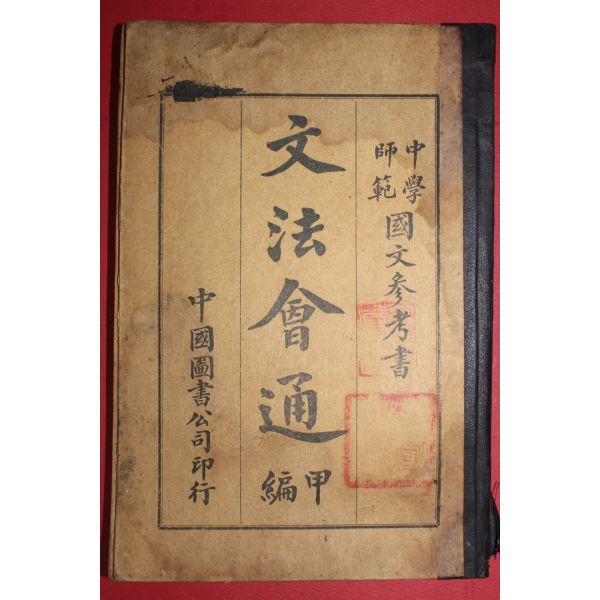 中學師範國文參考書
文法會通
甲編
中國圖書公司印行